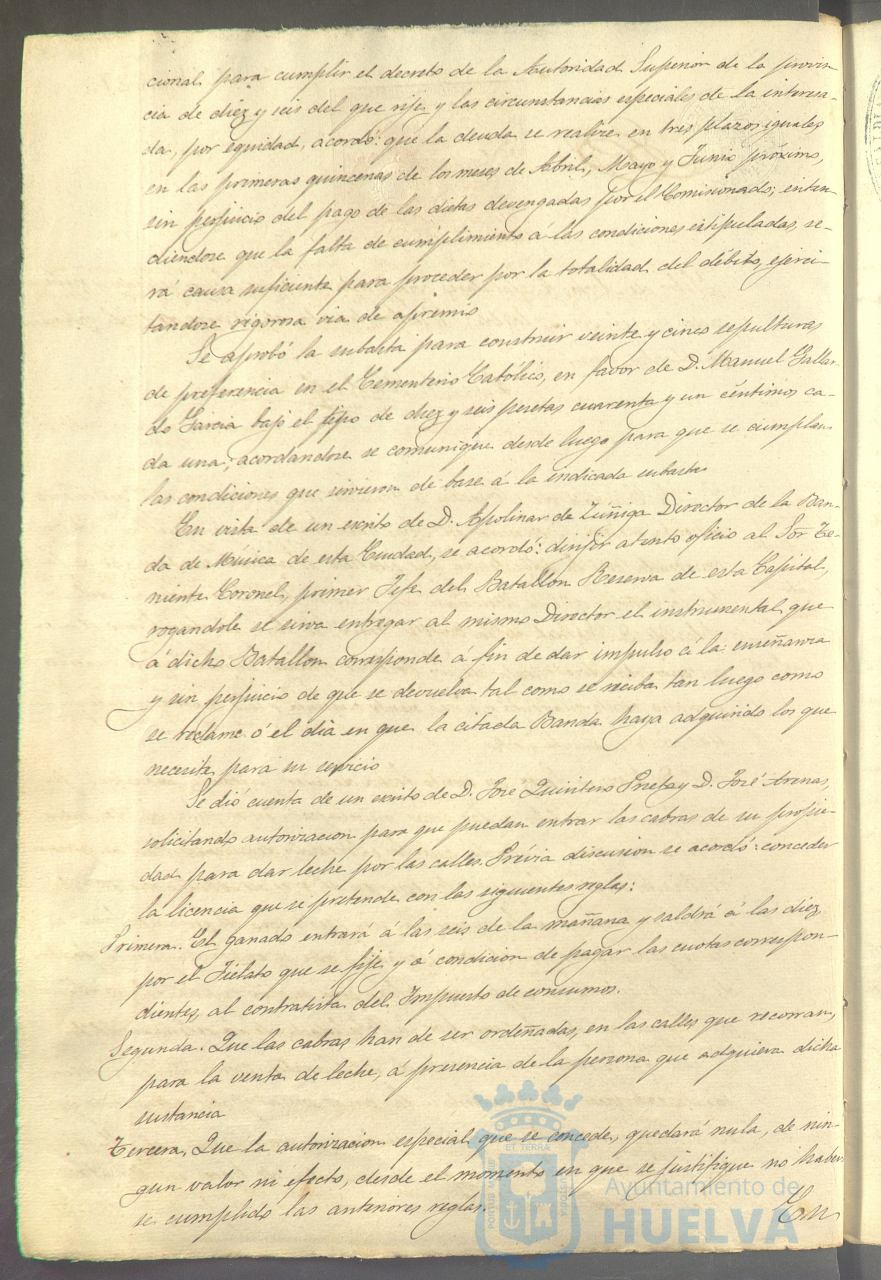 cional para cumplir el decreto de la Autoridad Superior de la provin-
cia de diez y seis del que rije y las circunstancias especiales de la interesa-
da, por equidad, acordó: que la deuda se realice en tres plazos iguales
en las primeras quincenas de los meses de Abril, Mayo y Junio próximo,
sin perjuicio del pago de las dietas devengadas por el Comisionado; enten-
diendose que la falta de cumplimiento á las condiciones estipuladas, se-
rá causa suficiente para proceder por la totalidad del débito, ejerci-
tandose rigorosa via de apremio
Se aprobó la subasta para construir veinte y cinco sepulturas
de preferencia en el Cementerio Católico, en favor de D. Manuel Gallar-
do Garcia bajo el tipo de diez y seis pesetas cuarenta y un céntimos ca-
da una, acordandose se comunique desde luego para que se cumplan
las condiciones que sirvieron de base á la indicada subasta
En vista de un escrito de D. Apolinar de Zúñiga Director de la Ban-
da de Música de esta Ciudad, se acordó: dirijir atento oficio al Sor. Te-
niente Coronel, primer Jefe del Batallon Reserva de esta Capital,
rogandole se sirva entregar al mismo Director el instrumental que
á dicho Batallon corresponde á fin de dar impulso á la enseñanza
y sin perjuicio de que se devuelva tal como se reciba tan luego como
se reclame ó el dia en que la citada Banda haya adquirido los que
necesite para su servicio
Se dió cuenta de un escrito de D. José Quintero Prieto y D. José Arenas,
solicitando autorizacion para que puedan entrar las cabras de su propie-
dad para dar leche por las calles. Prévia discusion se acordó: conceder
la licencia que se pretende con las siguientes reglas:
Primera. El ganado entrará á las seis de la mañana y saldrá á las diez
por el Fielato que se fije y á condicion de pagar las cuotas correspon-
dientes, al contratista del Impuesto de consumos.
Segunda. Que las cabras han de ser ordeñadas, en las calles que recorran,
para la venta de leche, á presencia de la persona que adquiera dicha
sustancia
Tercera. Que la autorizacion especial que se concede, quedará nula, de nin-
gun valor ni efecto, desde el momento en que se justifique no haber-
se cumplido las anteriores reglas.
En
ET TERRÆ
PORTUS
Ayuntamiento de
HUELVA